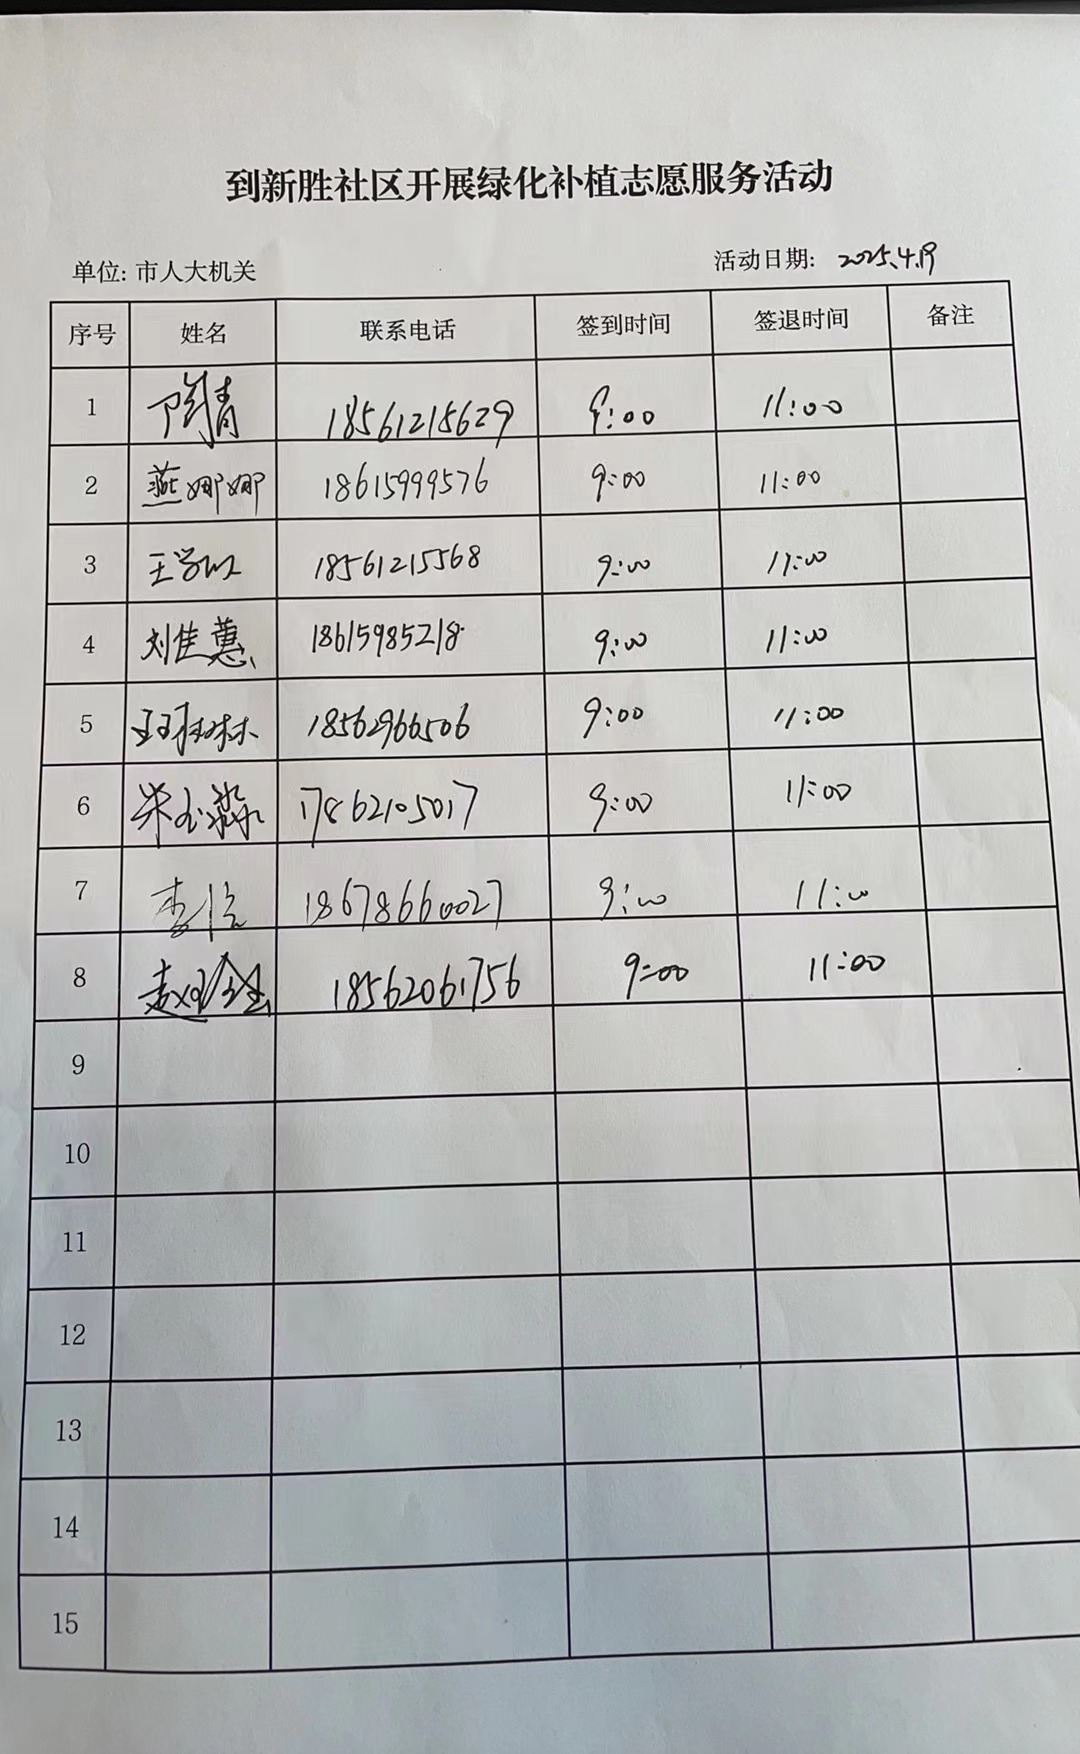 到新胜社区开展绿化补植志愿服务活动
单位: 市人大机关 活动日期: 2025.4.19
序号 姓名 联系电话 签到时间 签退时间 备注
1 陶青 18561215629 9:00 11:00
2 燕娜娜 18615999576 9:00 11:00
3 王 18561215568 9:00 11:00
4 刘佳蕙 18615985218 9:00 11:00
5 18562966506 9:00 11:00
6 朱玉淼 17862105017 9:00 11:00
7 李信 18678660027 9:00 11:00
8 赵 18562061756 9:00 11:00
9
10
11
12
13
14
15